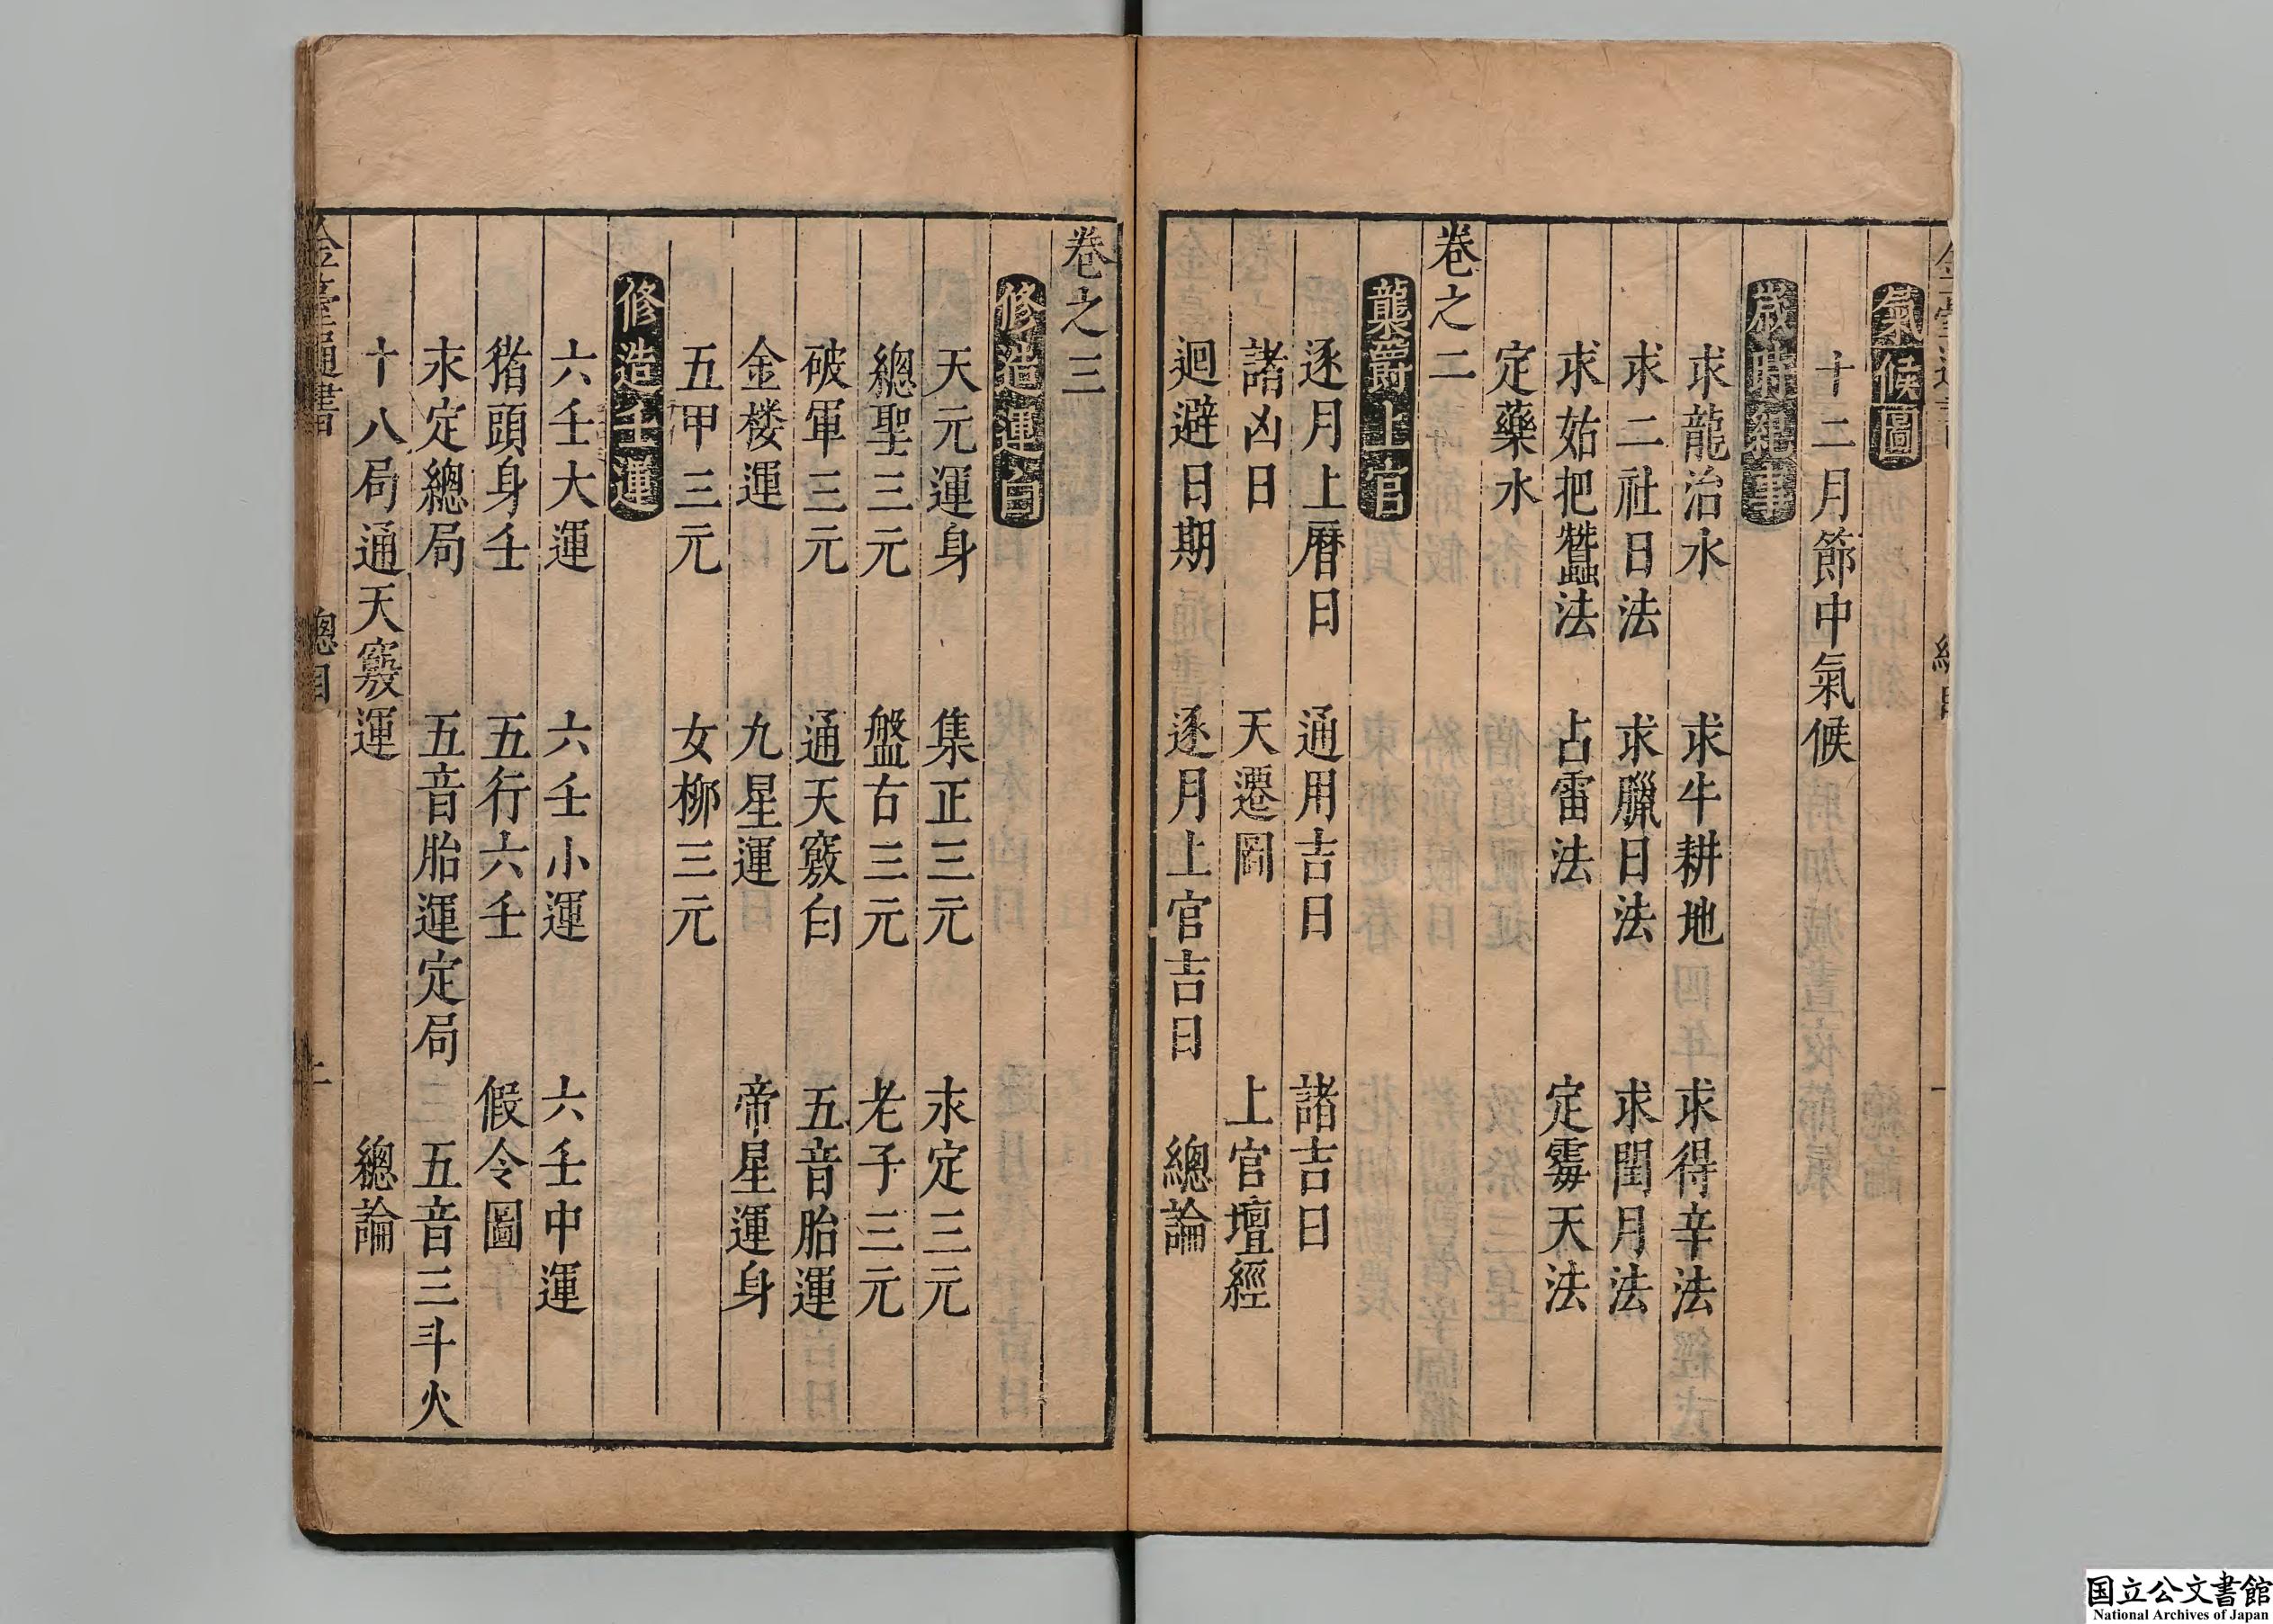 氣候圖
十二月節中氣候
歲時紀事
求龍治水　求牛耕地　求得辛法
求二社日法　求臘日法　求閏月法
求姑把蠶法　占雷法　定霉天法
定藥水
卷之二
襲爵上官
逐月上曆日　通用吉日　諸吉日
諸凶日　天遷圖　上官壇經
迴避日期　逐月上官吉日　總論
卷之三
修造運白
天元運身　集正三元　求定三元
總聖三元　盤古三元　老子三元
破軍三元　通天竅白　五音胎運
金楼運　九星運　帝星運身
五甲三元　女柳三元
修造壬運
六壬大運　六壬小運　六壬中運
猪頭身壬　五行六壬　假令圖
求定總局　五音胎運定局　五音三斗火
十八局通天竅運　總論
金臺通書　總目
国立公文書館
National Archives of Japan